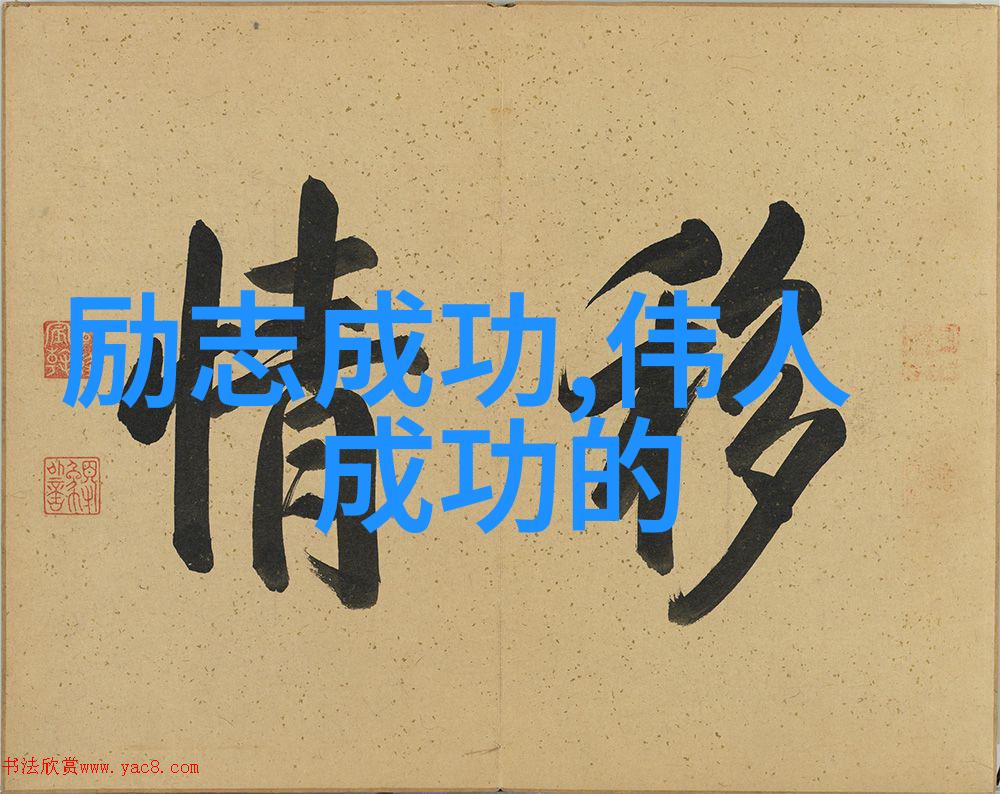 移情
励志成功,伟人
成功的
书法欣赏www.yac8.com